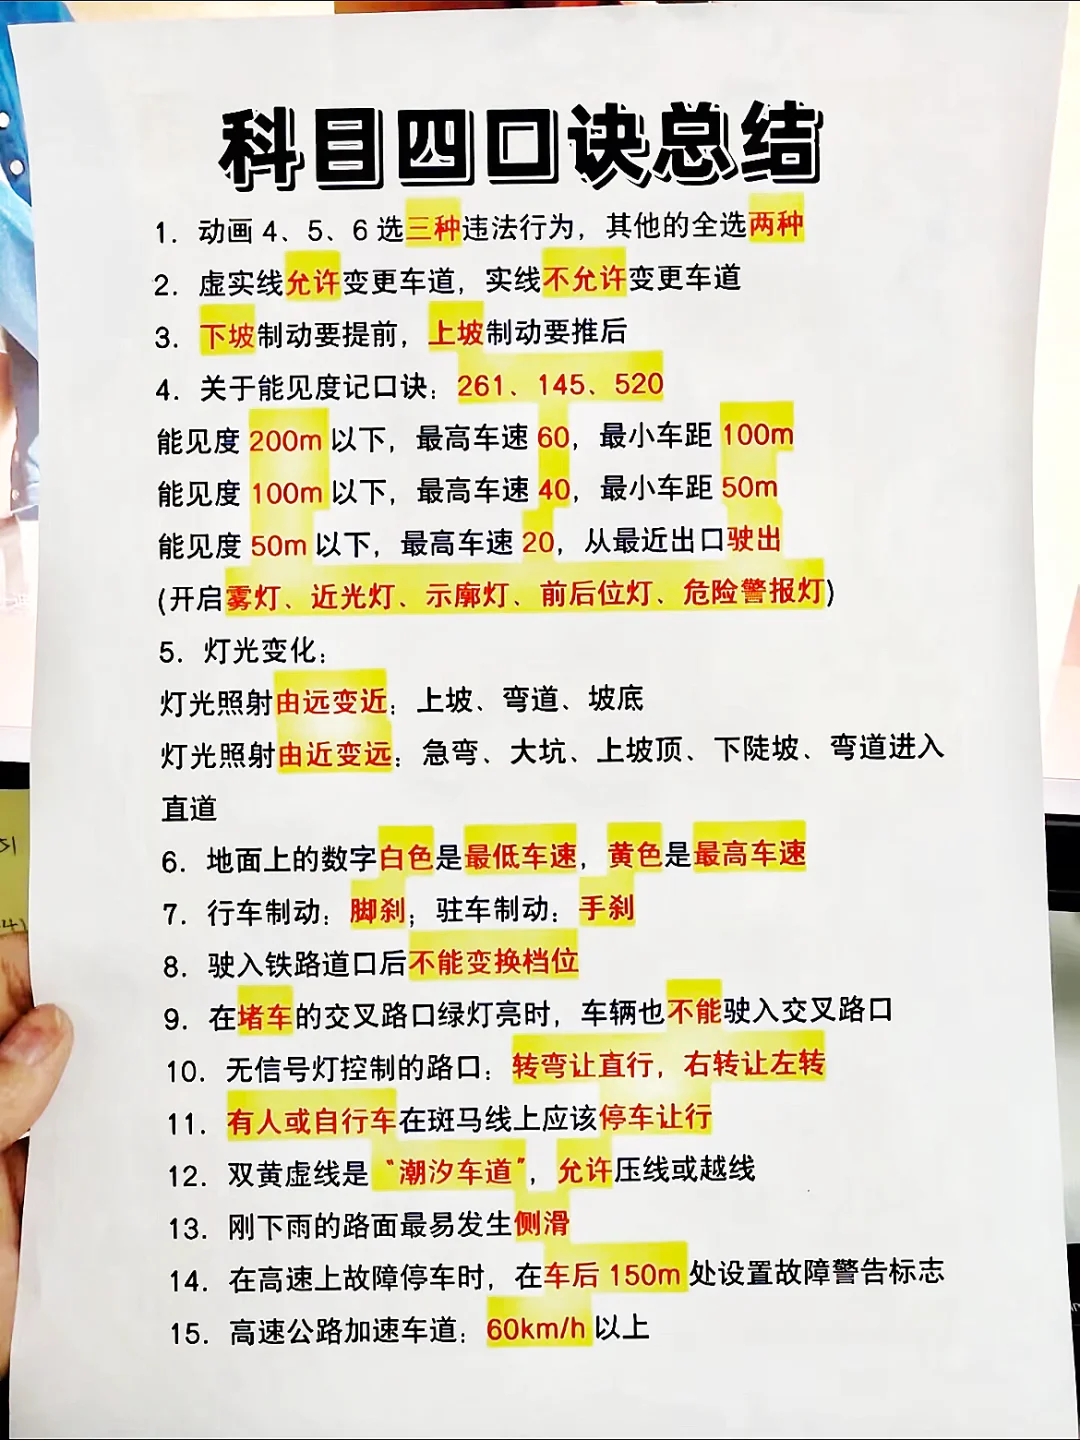 科目四口诀总结
1. 动画 4、5、6 选三种违法行为，其他的全选两种
2. 虚实线允许变更车道，实线不允许变更车道
3. 下坡制动要提前，上坡制动要推后
4. 关于能见度记口诀：261、145、520
能见度 200m 以下，最高车速 60，最小车距 100m
能见度 100m 以下，最高车速 40，最小车距 50m
能见度 50m 以下，最高车速 20，从最近出口驶出
(开启雾灯、近光灯、示廓灯、前后位灯、危险警报灯)
5. 灯光变化：
灯光照射由远变近：上坡、弯道、坡底
灯光照射由近变远：急弯、大坑、上坡顶、下陡坡、弯道进入
直道
6. 地面上的数字白色是最低车速，黄色是最高车速
7. 行车制动：脚刹；驻车制动：手刹
8. 驶入铁路道口后不能变换档位
9. 在堵车的交叉路口绿灯亮时，车辆也不能驶入交叉路口
10. 无信号灯控制的路口：转弯让直行，右转让左转
11. 有人或自行车在斑马线上应该停车让行
12. 双黄虚线是“潮汐车道”，允许压线或越线
13. 刚下雨的路面最易发生侧滑
14. 在高速上故障停车时，在车后 150m 处设置故障警告标志
15. 高速公路加速车道：60km/h 以上